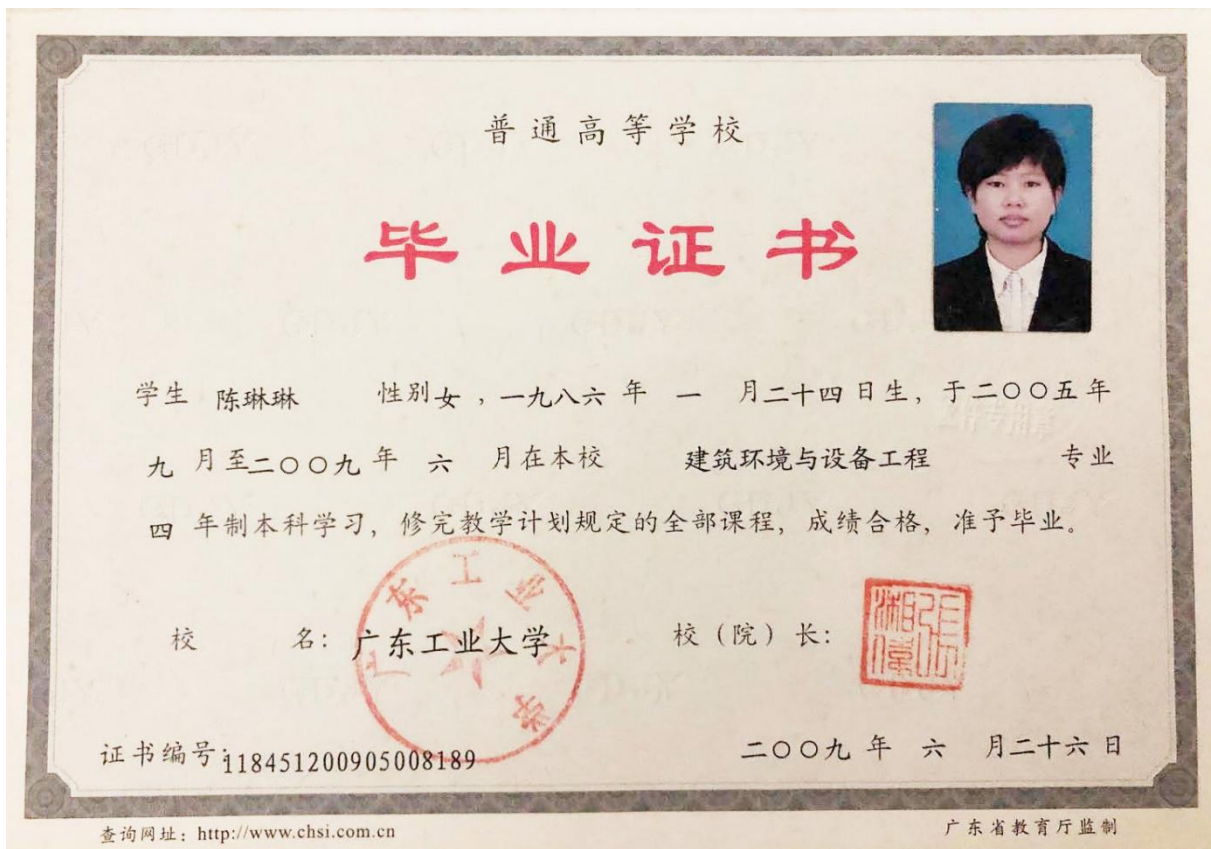 普通高等学校
毕业证书
学生 陈琳琳 性别女，一九八六 年 一 月二十四日生，于二〇〇五年
九 月至二〇〇九 年 六 月在本校 建筑环境与设备工程 专业
四 年制本科学习，修完教学计划规定的全部课程，成绩合格，准予毕业。
广东工业大学
校 名：广东工业大学 校（院）长：
证书编号：118451200905008189 二〇〇九 年 六 月二十六日
查询网址：http://www.chsi.com.cn 广东省教育厅监制